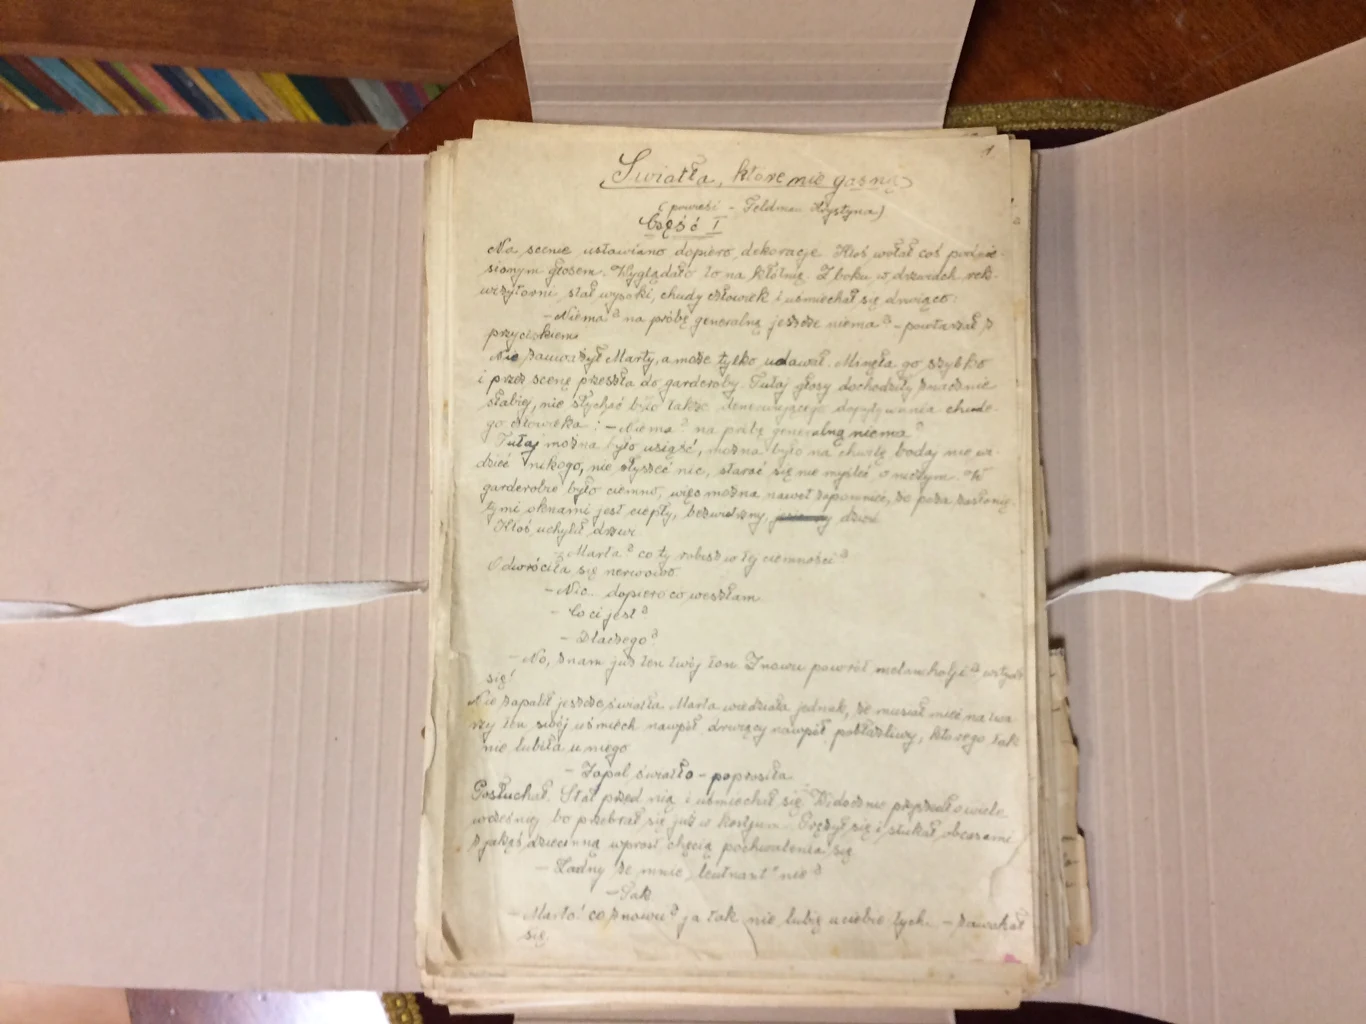 1
Światła, które nie gasną
(powieść - Feldman Krystyna)
Część I
Na scenie ustawiano dopiero dekoracje. Ktoś wołał coś podnie-
sionym głosem. Wyglądało to na kłótnię. Z boku, w drzwiach rek-
wizytorni, stał wysoki, chudy człowiek i uśmiechał się drwiąco:
- Niema? na próbę generalną jeszcze niema? - powtarzał z
przyciskiem.
Nie zauważył Marty, a może tylko udawał. Minęła go szybko
i przez scenę przeszła do garderoby. Tutaj głosy dochodziły znacznie
słabiej, nie słychać było także denerwującego dopytywania chude-
go człowieka: - Niema? na próbę generalną niema?
Tutaj można było usiąść, można było na chwilę bodaj nie wi-
dzieć nikogo, nie słyszeć nic, starać się nie myśleć o niczym. W
garderobie było ciemno, więc można nawet zapomnieć, że poza zasłonię-
tymi oknami jest ciepły, bezwietrzny, dzień
Ktoś uchylił drzwi.
- Marta? co ty robisz w tej ciemności?
Odwróciła się nerwowo.
- Nic. dopiero co weszłam.
- Co ci jest?
- Dlaczego?
- No, znam już ten twój ton. Znowu powrót melancholji?
się!
Nie zapalił jeszcze światła. Marta wiedziała jednak, że musiał mieć na twa-
rzy ten swój uśmiech nawpół drwiący nawpół pobłażliwy, którego tak
nie lubiła u niego.
- Zapal światło - poprosiła.
Posłuchał. Stał przed nią i uśmiechał się. Widocznie przyszedł o wiele
wcześniej bo przebrał się już w kostjum. Prężył się i stukał obcasami
z jakąś dziecinną wprost chęcią pochwalenia się
- Ładny ze mnie "leutnant" nie?
- Tak.
- Marto! co znowu? ja tak nie lubię u ciebie tych. - zawahał
się.